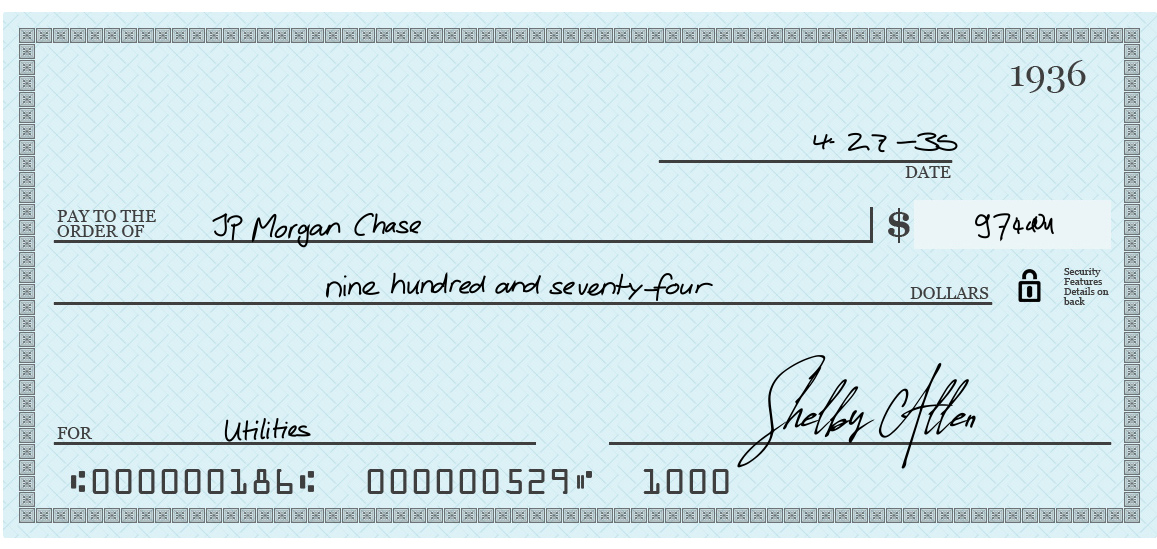 1936
4-27-35
DATE
PAY TO THE
ORDER OF JP Morgan Chase $
nine hundred and seventy-four DOLLARS
Security
Features
Details on
back
FOR Utilities Shelby Allen
⑆000000186⑆ 000000529⑈ 1000